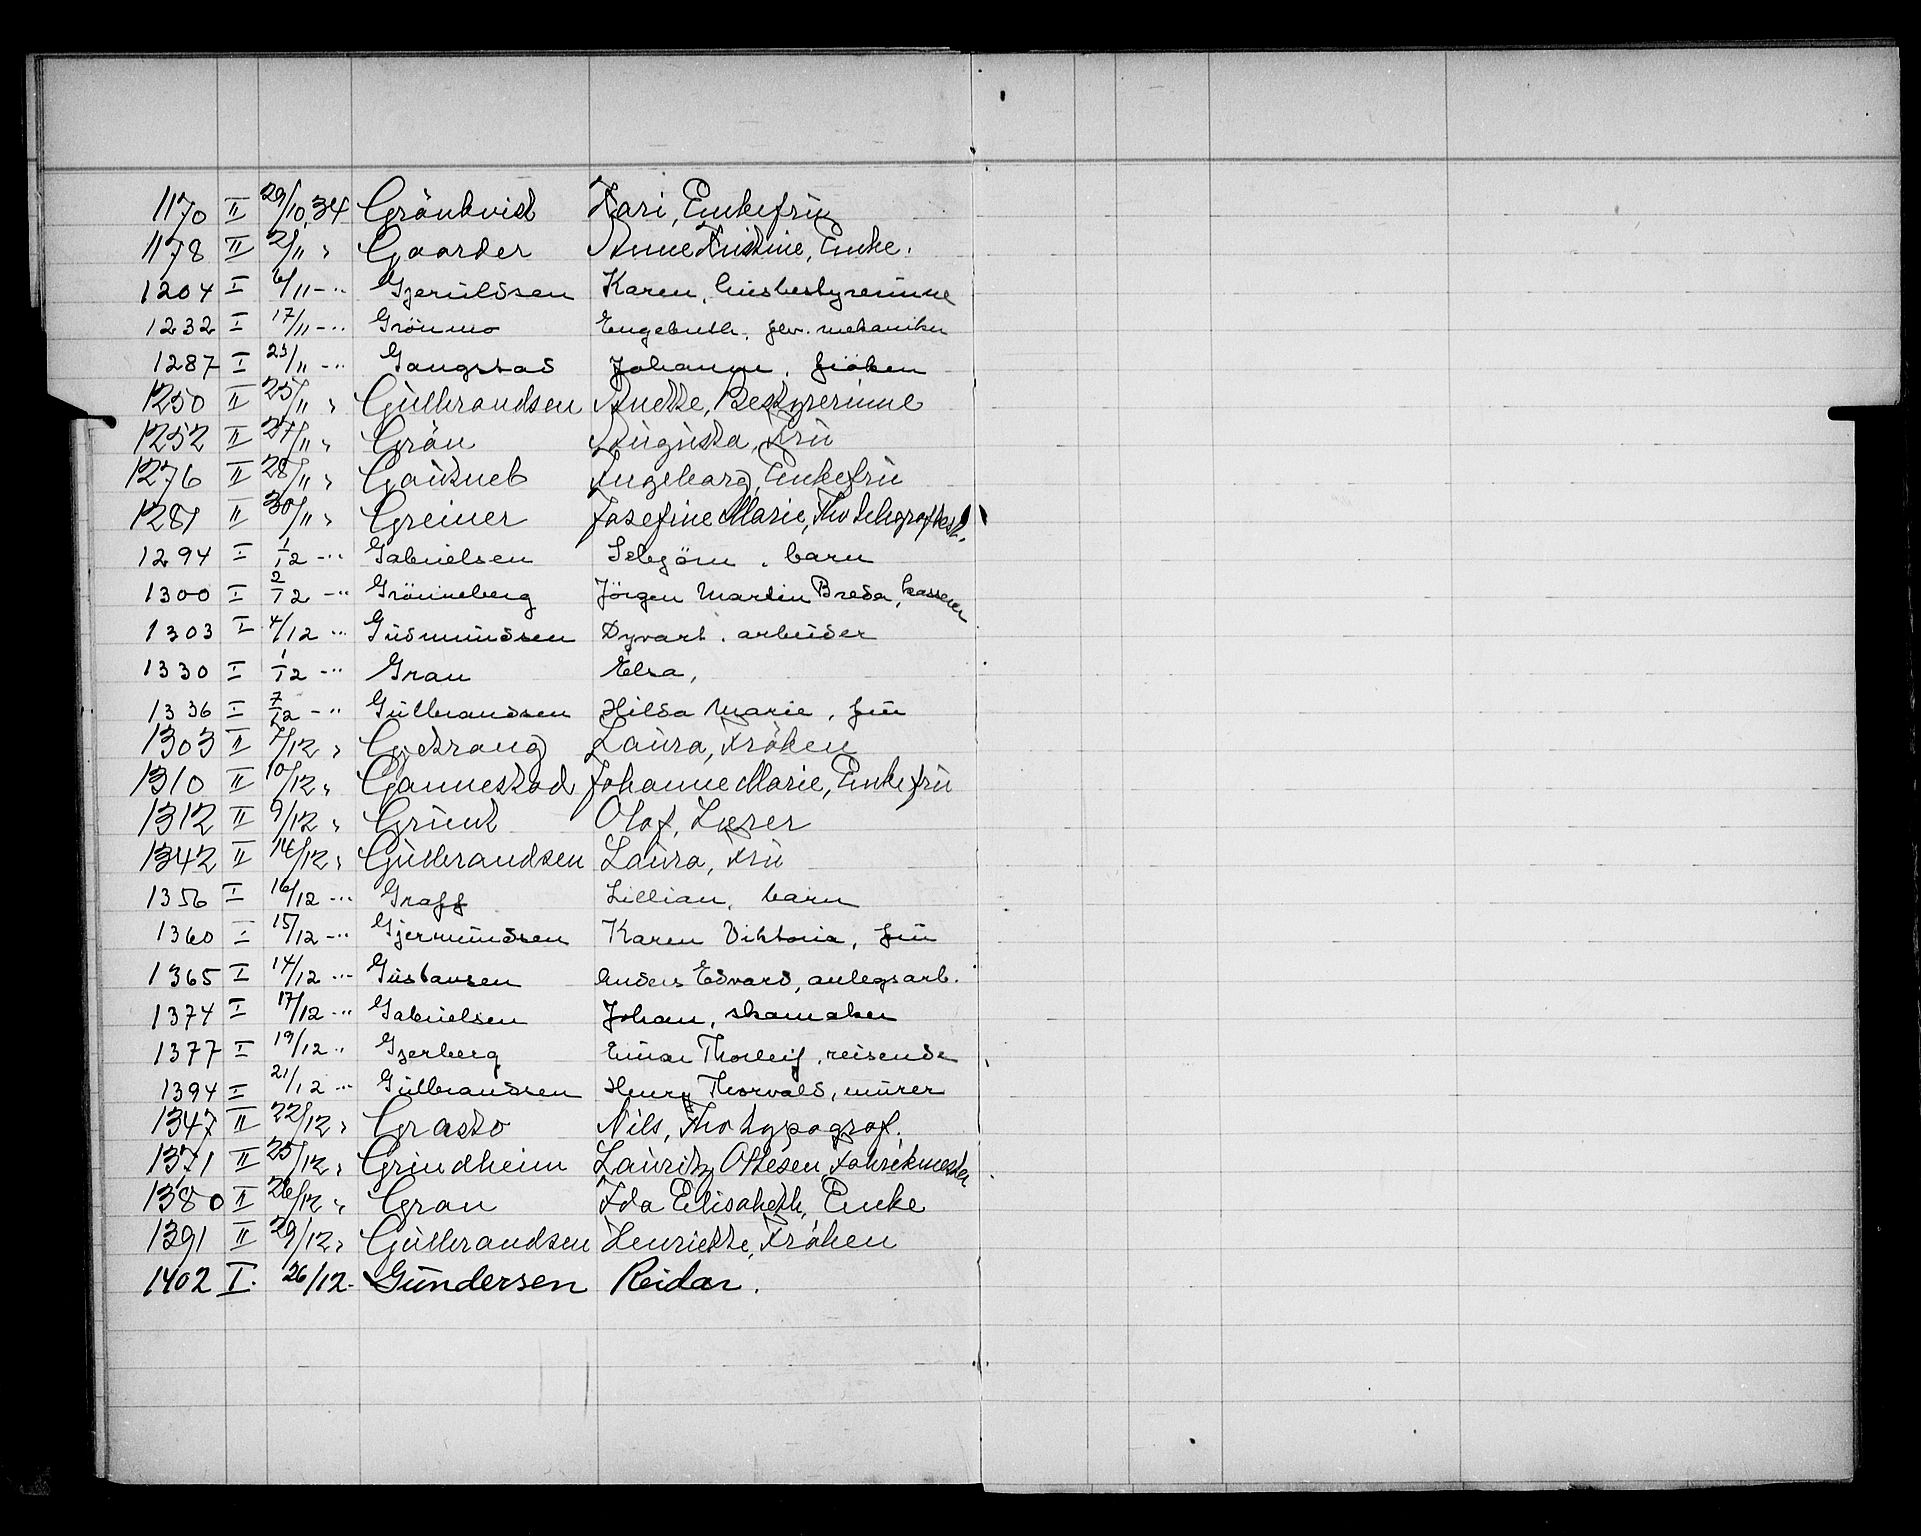 1170 II 29/10 34 Grönkvist Kari, Enkefru
1178 II 2/11 " Gaarder Anne Kristine, Enke.
1204 I 6/11 - " Gjeruldsen Karen, husbestyrerinne
1232 I 17/11 - " Grönmo Engebreth. fhv. mekaniker
1287 I 23/11 - " Gangstad Johanne, fröken
1250 II 25/11 " Gulbrandsen Anette, Bestyrerinne
1252 II 27/11 " Grön Augusta, Fru
1276 II 28/11 " Ingeborg, Enkefru
1281 II 30/11 " Greiner Josefine Marie,
1294 I 1/12 - " Gabrielsen barn
1300 I 2/12 - " Grönneberg Jörgen Martin Breda, kasserer
1303 I 4/12 " Gudmundsen Dyvart. arbeider
1330 I 1/12 - " Gran Elsa,
1336 I 7/12 - " Gulbrandsen Hilda Marie, fru
1303 II 7/12 " Gjetrang Laura, Fröken
1310 II 10/12 " Gannestad Johanne Marie, Enkefru
1312 II 9/12 " Grunt Olaf, Lærer
1342 II 14/12 " Gulbrandsen Laura, Fru
1356 I 16/12 - " Graff Lillian, barn
1360 I 15/12 - " Gjermundsen Karen Viktoria, fru
1365 I 14/12 - " Gustavsen Anders Edvard, anlegsarb.
1374 I 17/12 - " Gabrielsen Johan, skomaker
1377 I 19/12 - " Gjerberg Einar Thorleif, reisende
1394 I 21/12 - " Gulbrandsen Henry Thorvald, murer
1347 II 22/12 " Grasto Nils, Fhv typograf.
1371 II 25/12 " Grindheim Lauritz Ottesen, Fabrikmester
1380 II 26/12 " Gran Ida Elisabeth, Enke
1391 II 29/12 " Gulbrandsen Henriette, Fröken
1402 I. 26/12 - Gundersen Reidar.